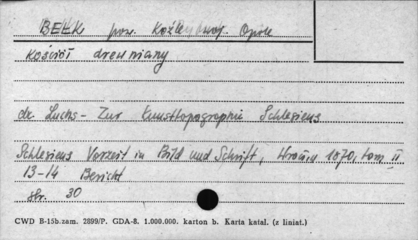 BEŁK pow. Koźle, woj. Opole
kościół drewniany
dr. Luchs - Zur Kunsttopographie Schlesiens
Schlesiens Vorzeit in Bild und Schrift, Wrocław 1870, tom II
13-14 Bericht
str. 30
CWD B-15b.zam. 2899/P. GDA-8. 1.000.000. karton b. Karta katal. (z liniat.)